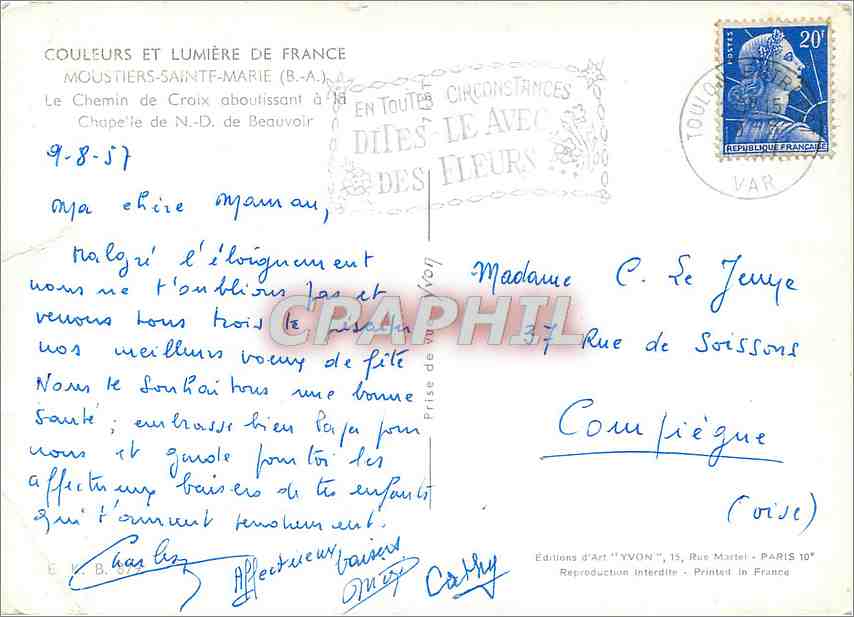 COULEURS ET LUMIÈRE DE FRANCE
MOUSTIERS-SAINTE-MARIE (B.-A.)
Le Chemin de Croix aboutissant à la
Chapelle de N.-D. de Beauvoir
EN TOUTES CIRCONSTANCES
DITES-LE AVEC
DES FLEURS
TOULON
VAR
POSTES
20F
REPUBLIQUE FRANÇAISE
9-8-57
Ma chère Maman,
Malgré l'éloignement
nous ne t'oublions pas et
venons tous trois te
nos meilleurs voeux de fête
Nous te souhaitons une bonne
santé ; embrasse bien Papa pour
nous et garde pour toi les
affectueux baisers de tes enfants
qui t'aiment tendrement.
Charles
Affectueux baisers
Cathy
Prise de vue Yvon
CPAPHIL
Madame C. Le
37 Rue de Soissons
Compiègne
(oise)
Editions d'Art "YVON", 15, Rue Martel - PARIS 10e
Reproduction Interdite - Printed in France